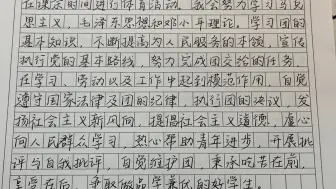 在课余时间进行体育活动。我会努力学习马克
思主义，毛泽东思想和邓小平理论，学习团的
基本知识，不断提高为人民服务的本领，宣传
执行党的基本路线，努力完成团交给的任务，
在学习，劳动以及工作中起到模范作用，自觉
遵守国家法律及团的纪律，执行团的决议，发
扬社会主义新风向，提倡社会主义道德，虚心
向人民群众学习，热心帮助青年进步，开展批
评与自我批评，自觉维护团，秉承吃苦在前，
享受在后，争取做品学兼优的好学生。